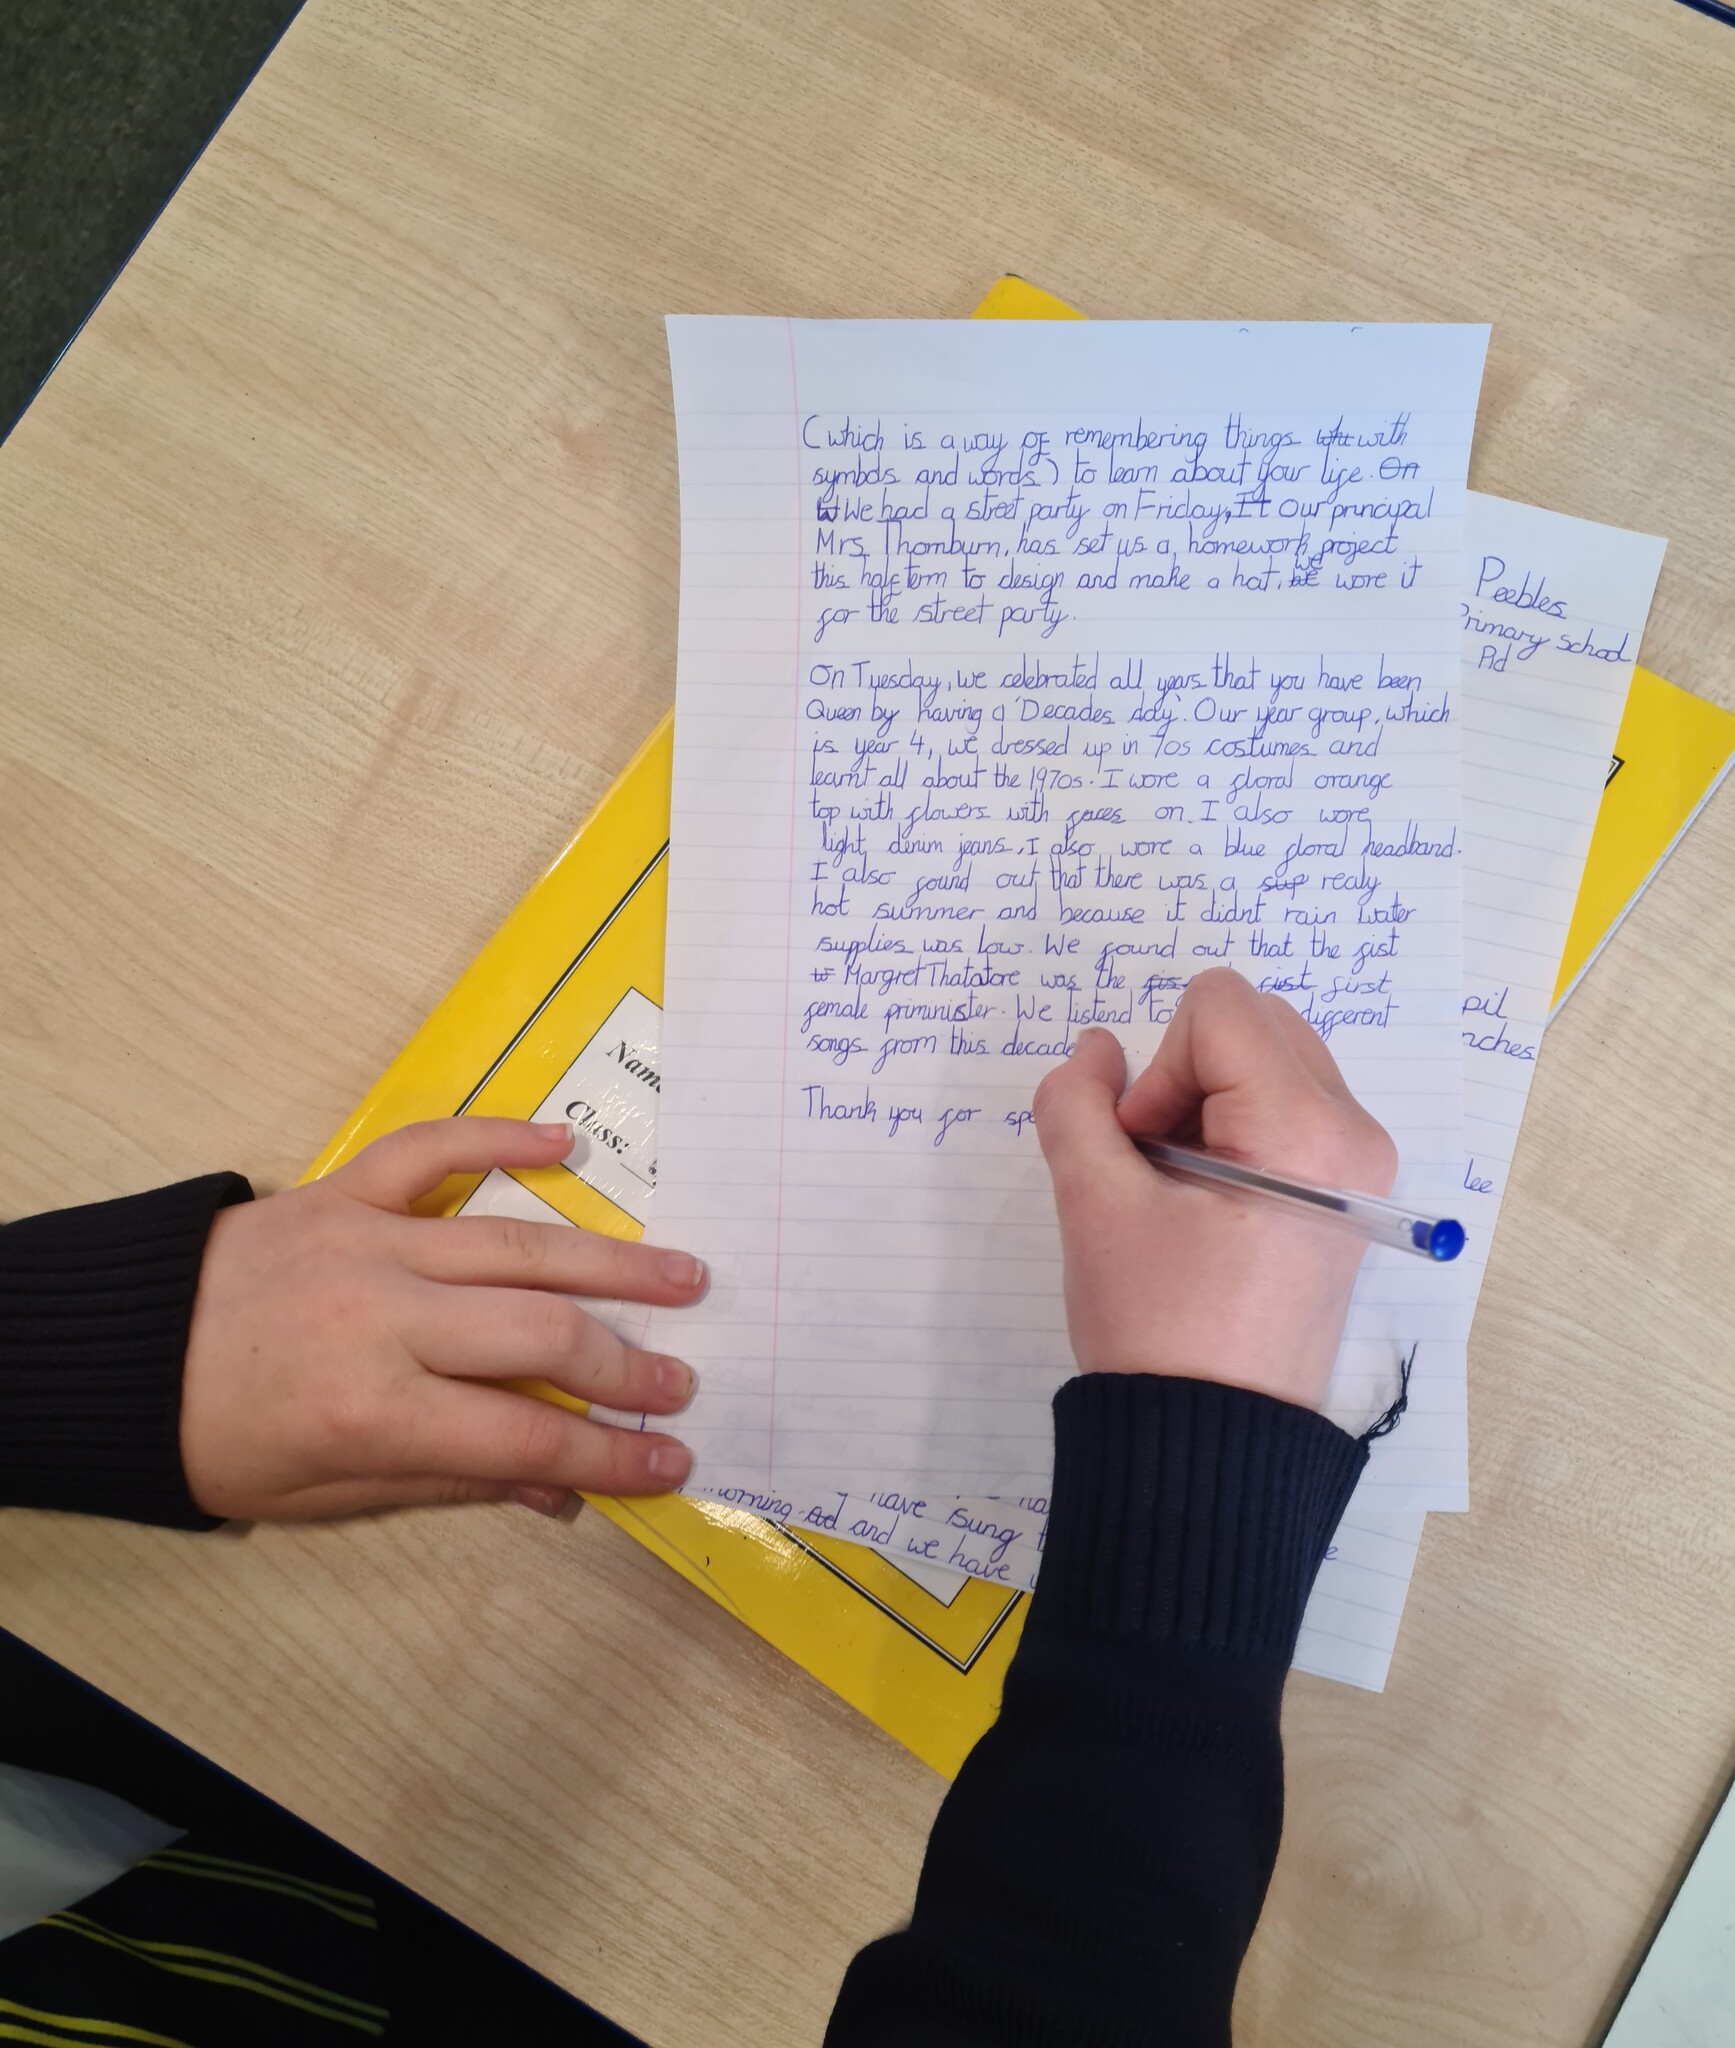 (which is a way of remembering things with
symbols and words) to learn about your life. On
We had a street party on Friday, It Our principal
Mrs Thornburn, has set us a homework project
this half term to design and make a hat, we wore it
for the street party.
On Tuesday, we celebrated all years that you have been
Queen by having a 'Decades day'. Our year group, which
is year 4, we dressed up in 70s costumes and
learnt all about the 1970s. I wore a floral orange
top with flowers with faces on. I also wore
light denim jeans, I also wore a blue floral headband.
I also found out that there was a sup realy
hot summer and because it didnt rain water
supplies was low. We found out that the fist
Margret Thatatore was the fist first
female priminister. We listend to different
songs from this decade
Thank you for spe
Peebles
Primary school
Rd
pil
nches
lee
Name
Class:
have sung
morning and and we have